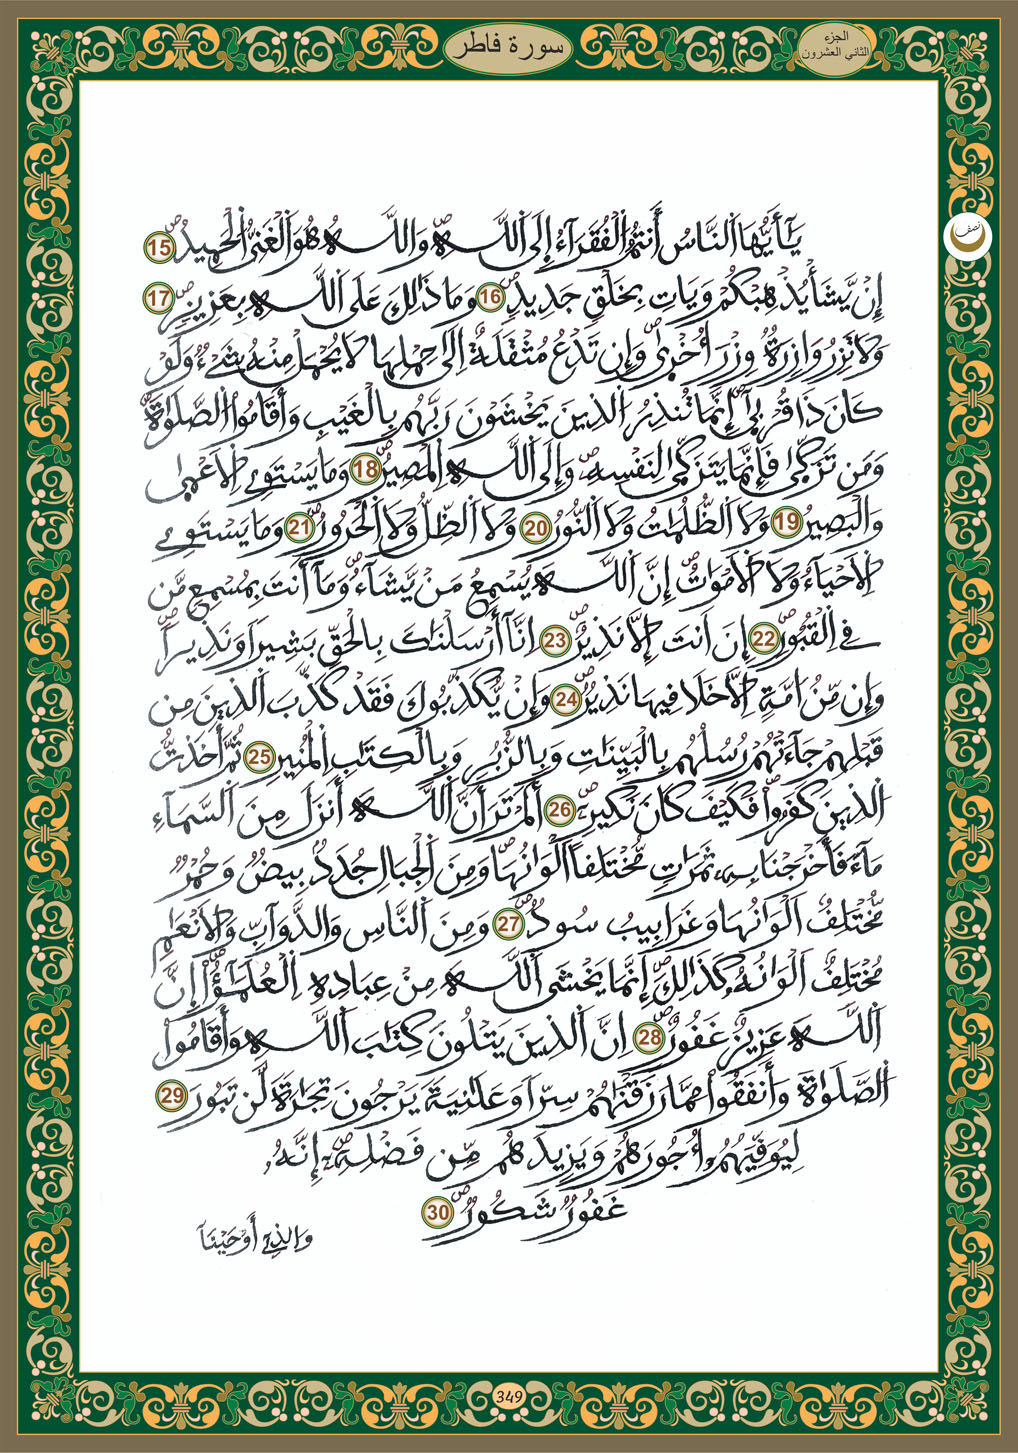 سورة فاطر
الجزء
الثاني العشرون
نصف
يَٰٓأَيُّهَا اَ۬لنَّاسُ أَنتُمُ اُ۬لْفُقَرَآءُ اِ۪لَى اَ۬للَّهِۖ وَاللَّهُ هُوَ اَ۬لْغَنِيُّ اُ۬لْحَمِيدُۖ 15
إِنْ يَّشَأْ يُذْهِبْكُمْ وَيَاتِ بِخَلْقٖ جَدِيدٖۖ 16 وَمَا ذَٰلِكَ عَلَى اَ۬للَّهِ بِعَزِيزٖۖ 17
وَلَا تَزِرُ وَازِرَةٞ وِزْرَ أُخْر۪ىٰۖ وَإِن تَدْعُ مُثْقَلَةٌ اِلَىٰ حِمْلِهَا لَا يُحْمَلْ مِنْهُ شَےْءٞ وَلَوْ
كَانَ ذَا قُرْب۪ىٰٓۖ إِنَّمَا تُنذِرُ اُ۬لذِينَ يَخْشَوْنَ رَبَّهُم بِالْغَيْبِ وَأَقَامُواْ اُ۬لصَّلَوٰةَۖ
وَمَن تَزَكّ۪ىٰ فَإِنَّمَا يَتَزَكّ۪ىٰ لِنَفْسِهِۦۖ وَإِلَى اَ۬للَّهِ اِ۬لْمَصِيرُۖ 18 وَمَا يَسْتَوِے اِ۬لَاعْم۪ىٰ
وَالْبَصِيرُۖ 19 وَلَا اَ۬لظُّلُمَٰتُ وَلَا اَ۬لنُّورُۖ 20 وَلَا اَ۬لظِّلُّ وَلَا اَ۬لْحَرُورُۖ 21 وَمَا يَسْتَوِے
اِ۬لَاحْيَآءُ وَلَا اَ۬لَامْوَٰتُۖ إِنَّ اَ۬للَّهَ يُسْمِعُ مَنْ يَّشَآءُۖ وَمَآ أَنتَ بِمُسْمِعٖ مَّن
فِے اِ۬لْقُبُورِۖ 22 إِنَ اَنتَ إِلَّا نَذِيرٌۖ 23 اِنَّآ أَرْسَلْنَٰكَ بِالْحَقِّ بَشِيراٗ وَنَذِيراٗۖ
وَإِن مِّنُ امَّةٍ اِلَّا خَلَا فِيهَا نَذِيرٞۖ 24 وَإِنْ يُّكَذِّبُوكَ فَقَدْ كَذَّبَ اَ۬لذِينَ مِن
قَبْلِهِمْ جَآءَتْهُمْ رُسُلُهُم بِالْبَيِّنَٰتِ وَبِالزُّبُرِ وَبِالْكِتَٰبِ اِ۬لْمُنِيرِۖ 25 ثُمَّ أَخَذتُّ
اُ۬لذِينَ كَفَرُواْۖ فَكَيْفَ كَانَ نَكِيرِۦۖ 26 أَلَمْ تَرَ أَنَّ اَ۬للَّهَ أَنزَلَ مِنَ اَ۬لسَّمَآءِ
مَآءٗ فَأَخْرَجْنَا بِهِۦ ثَمَرَٰتٖ مُّخْتَلِفاً اَلْوَٰنُهَاۖ وَمِنَ اَ۬لْجِبَالِ جُدَدُۢ بِيضٞ وَحُمْرٞ
مُّخْتَلِفٌ اَلْوَٰنُهَا وَغَرَابِيبُ سُودٞۖ 27 وَمِنَ اَ۬لنَّاسِ وَالدَّوَآبِّ وَالَانْعَٰمِ
مُخْتَلِفٌ اَلْوَٰنُهُۥ كَذَٰلِكَۖ إِنَّمَا يَخْشَى اَ۬للَّهَ مِنْ عِبَادِهِ اِ۬لْعُلَمَٰٓؤُاْۖ اِنَّ
اَ۬للَّهَ عَزِيزٌ غَفُورٌۖ 28 اِنَّ اَ۬لذِينَ يَتْلُونَ كِتَٰبَ اَ۬للَّهِ وَأَقَامُواْ
اُ۬لصَّلَوٰةَ وَأَنفَقُواْ مِمَّا رَزَقْنَٰهُمْ سِرّاٗ وَعَلَٰنِيَةٗ يَرْجُونَ تِجَٰرَةٗ لَّن تَبُورَ 29
لِيُوَفِّيَهُمُۥٓ أُجُورَهُمْ وَيَزِيدَهُم مِّن فَضْلِهِۦٓۖ إِنَّهُۥ
غَفُورٞ شَكُورٞۖ 30
وَالذِےٓ أَوْحَيْنَآ
349